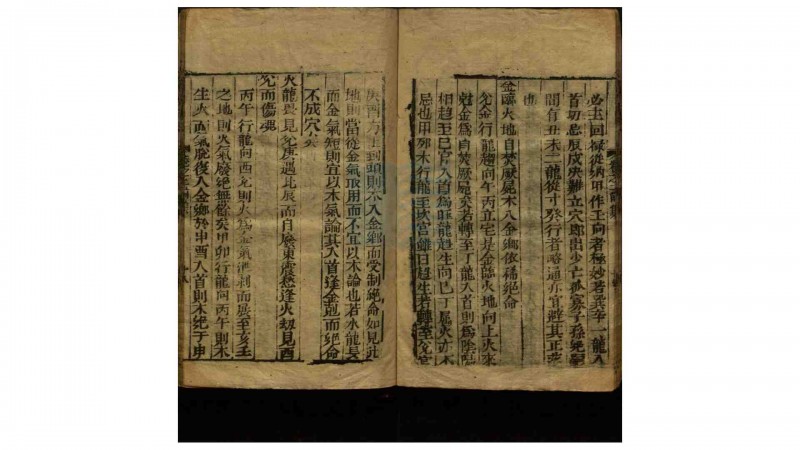 必主回祿從納甲作王向者極妙若巽辛一龍入
首切忌辰戌庚難立穴卽出少亡孤寡子孫絕
間有丑未二龍從寸發行者略通亦宜避其正
也
金臨火地自焚厥屍木入金鄉依稀絕命
兌金行龍趨向午丙立宅是金臨火地向上火來
尅金爲自焚厥屍矣若轉至丁龍入首則爲陰
相趨至巳官入首爲旺龍趨生向巳丁屬火亦
忌也甲卯木行龍至坎宮雖曰趨生若轉至兌
庚酉方上到頭則木入金鄉而受制絕命如見此
地則當從金氣取用而不宜以木論也若木龍長
而金氣短則宜以木氣論其入首逢金尅而絕命
不成穴矣
火龍畏見兌庚遇此屍而自廢東震愁逢火刧見酉
兌而傷魂
丙午行龍向酉兌則火爲金氣洩制而屍至亥壬
之地則火氣廢絕無餘矣甲卯行龍向丙午則木
生火而氣脫復入金鄉於申酉入首則木絕于申